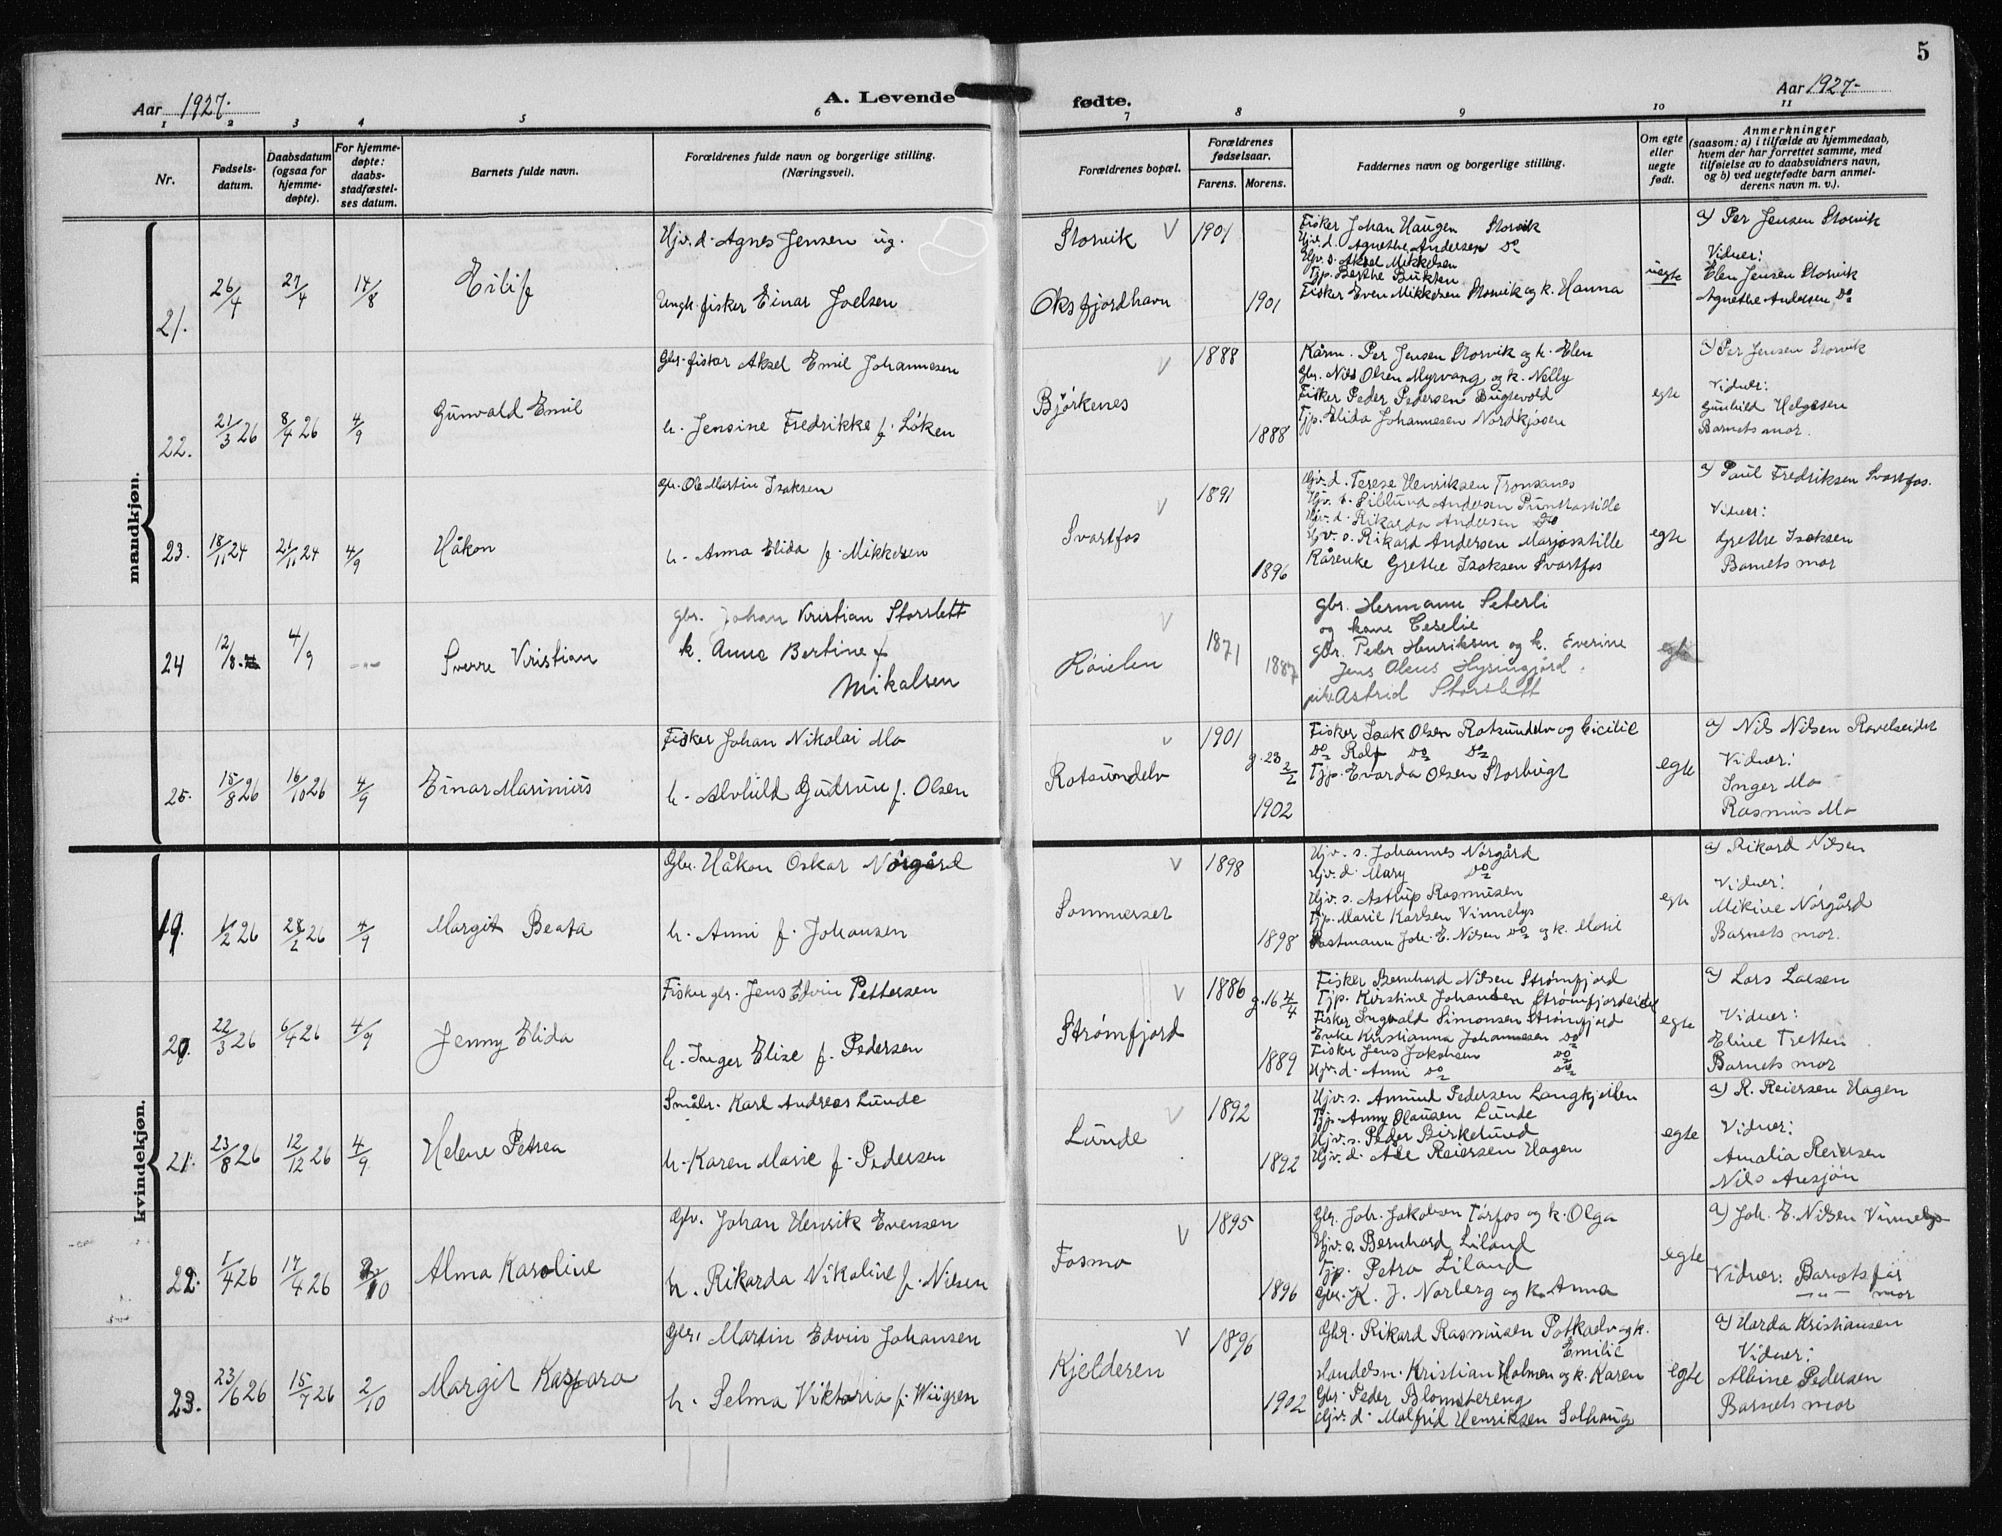 5
Aar 1927.
A. Levende
fødte.
Aar 1927.
1 2 3 4 5 6 7 8 9 10 11
Nr.
Fødsels-
datum.
Daabsdatum
(ogsaa for
hjemme-
døpte).
For hjemme-
døpte:
daabs-
stadfæstel-
ses datum.
Barnets fulde navn.
Forældrenes fulde navn og borgerlige stilling.
(Næringsvei).
Forældrenes bopæl.
Forældrenes
fødselsaar.
Farens. Morens.
Faddernes navn og borgerlige stilling.
Om egte
eller
uegte
født.
Anmerkninger
(saasom: a) i tilfælde av hjemmedaab,
hvem der har forrettet samme, med
tilføielse av to daabsvidners navn,
og b) ved uegtefødte barn anmel-
derens navn m. v.).
mandkjøn.
21. 26/4 27/4 14/8 Eilif
Hjv. d. Agnes Jensen ug.
Ungk. fisker Einar Joelsen
Storvik V 1901
Oksfjordhavn 1901
Fisker Johan Haugen Storvik
Hjv. d. Agnethe Andersen Do
Hjv. s. Aksel Mikkelsen
Tjp. Berthe Bukten
Fisker Even Mikkelsen Storvik og k. Hanna
uegte
a) Per Jensen Storvik
Vidner:
Elen Jensen Storvik
Agnethe Andersen Do
22. 21/3 26 8/4 26 4/9 Gunvald Emil
Gbr. fisker Aksel Emil Johannesen
h. Jensine Fredrikke f. Løken
Bjørkenes V 1888
1888
Kårm. Per Jensen Storvik og h. Elen
Gbr. Nils Olsen Myrvang og k. Nelly
Fisker Peder Pedersen Bugtevold
Tjp. Elida Johannesen Nordkjosen
egte
a) Per Jensen Storvik
Vidner:
Gunhild Helgesen
Barnets mor.
23. 18/11 24 21/11 24 4/9 Håkon
Gbr. Ole Martin Isaksen
h. Anna Elida f. Mikkelsen
Svartfos V 1891
1896
Hjv. d. Terese Henriksen Tronsanes
Hjv. s. Andersen Punktastille
Hjv. d. Rikarda Andersen Do
Hjv. s. Rikard Andersen Marjosstille
Kårenke Grethe Isaksen Svartfos
egte
a) Paul Fredriksen Svartfos.
Vidner:
Grethe Isaksen
Barnets mor
24 12/8 4/9 Sverre Kristian
gbr. Johan Kristian Storslett
k. Anna Bertine f
Mikalsen
Røielen V 1871 1887
gbr. Hermann Seterli
og kone Ceselie
gbr. Peder Henriksen og k. Everine
Jens Olsens
pike Astrid Storslett
egte
25. 15/8 26 16/10 26 4/9 Einar Marinius
Fisker Johan Nikolai Mo
h. Alvhild Gudrun f. Olsen
Rotsundelv V 1901
g. 23 2/2
1902
Fisker Isak Olsen Rotsundelv og Cicilie
Do Rolf Do Do
Tjp. Evarda Olsen Storbugt
egte
a) Nils Nilsen Ravelseidet
Vidner:
Inger Mo
Rasmus Mo
kvindekjøn.
19. /2 26 28/2 26 4/9 Margit Beata
Gbr. Håkon Oskar Nørgård
h. Anni f. Johansen
Sommerset V 1898
1898
Hjv. s. Johannes Nørgård
Hjv. d. Mary Do
Hjv. s. Astrup Rasmusen
Tjp. Marie Karlsen Vinnelys
Postmann Joh. E. Nilsen Do og k. Marie
egte
a) Rikard Nilsen
Vidner:
Mikine Nørgård
Barnets mor.
20. 22/3 26 6/4 26 4/9 Jenny Elida
Fisker gbr. Jens Edvin Pettersen
h. Inger Elise f. Pedersen
Strømfjord V 1886
g. 16 4/4
1889
Fisker Bernhard Nilsen Strømfjord
Tjp. Kirstine Johansen Strømfjordeidet
Fisker Ingvald Simonsen Strømfjord
Enke Kristianna Johannesen Do
Fisker Jens Jakobsen Do
Hjv. d. Anni Do Do
egte
a) Lars Larsen
Vidner:
Eline Tretten
Barnets mor
21. 23/8 26 12/12 26 4/9 Helene Petrea
Småbr. Karl Andreas Lunde
h. Karen Marie f. Pedersen
Lunde V 1892
1892
Hjv. s. Amund Pedersen Langkjellen
Tjp. Anny Olausen Lunde
Hjv. s. Peder Birkelund
Hjv. d. Ase Reiersen Hagen
egte
a) R. Reiersen Hagen
Vidner:
Amalia Reiersen
Nils Ansjøn
22. 1/4 26 17/4 26 2/10 Alma Karoline
Gbr. Johan Henrik Evensen
h. Rikarda Nikoline f. Nilsen
Fosmo V 1895
1896
Gbr. Joh. Jakobsen Tørfos og k. Olga
Hjv. s. Bernhard Liland
Tjp. Petra Liland
Gbr. K. J. Norberg og k. Anna
egte
a) Joh. E. Nilsen Vinnelys
Vidner: Barnets far
— " — mor
23. 23/6 26 15/7 26 2/10 Margit Kaspara
Gbr. Martin Edvin Johansen
h. Selma Viktoria f. Wiigren
Kjelderen V 1896
1902
Gbr. Rikard Rasmusen Potkaelv og k.
Emilie
Handelsm. Kristian Holmen og k. Karen
Gbr. Peder Blomstereng
Hjv. d. Malfrid Henriksen Solhaug
egte
a) Harda Kristiansen
Vidner:
Albine Pedersen
Barnets mor